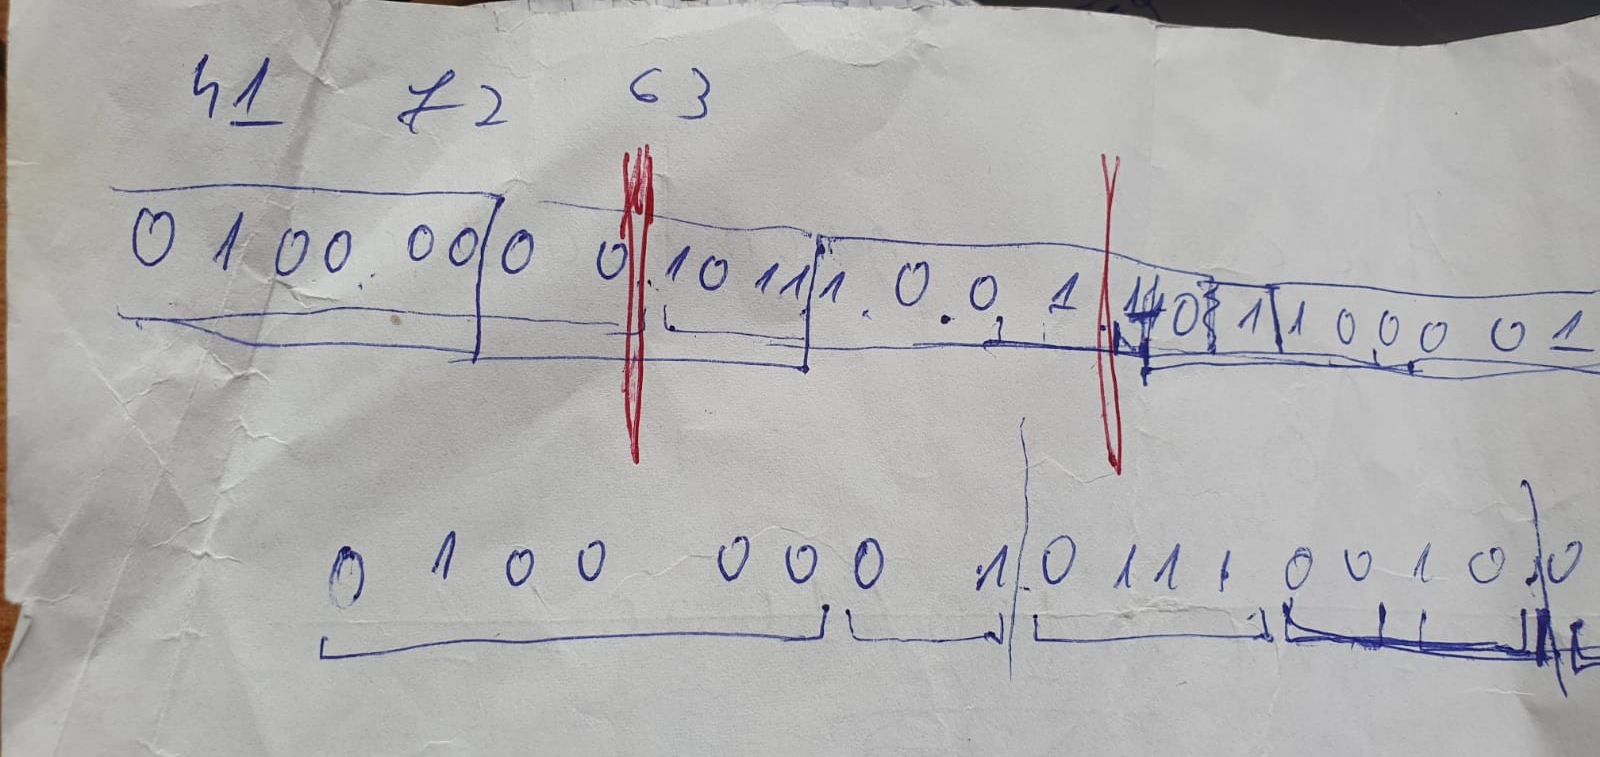 41 72 63
0 1 0 0 0 0 0 0 1 0 1 1 1 0 0 1 0 1 1 0 0 0 0 1
0 1 0 0 0 0 0 1 0 1 1 1 0 0 1 0 0